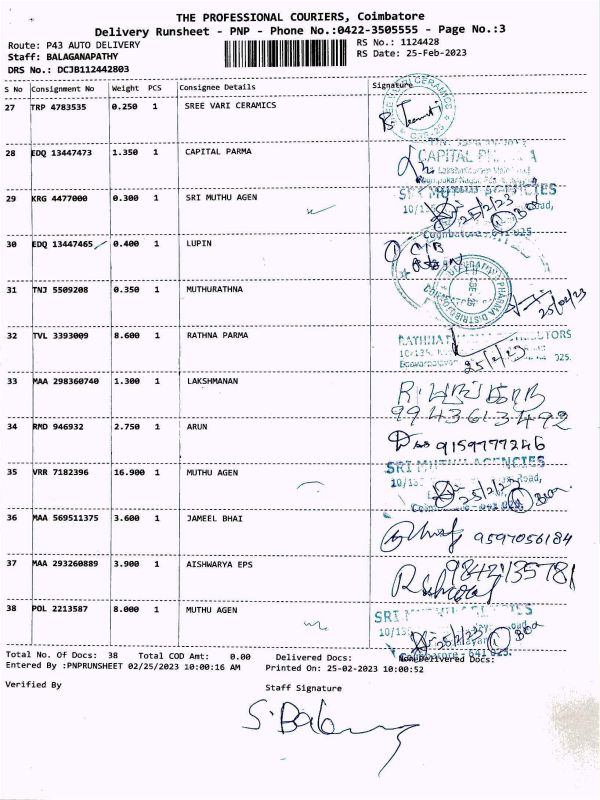 THE PROFESSIONAL COURIERS, Coimbatore
Delivery Runsheet - PNP - Phone No.:0422-3505555 - Page No.:3
Route: P43 AUTO DELIVERY RS No.: 1124428
Staff: BALAGANAPATHY RS Date: 25-Feb-2023
DRS No.: DCJB112442803
S No Consignment No Weight PCS Consignee Details Signature
27 TRP 4783535 0.250 1 SREE VARI CERAMICS
28 EDQ 13447473 1.350 1 CAPITAL PARMA
CAPITAL
29 KRG 4477000 0.300 1 SRI MUTHU AGEN
25/2/23
Coimbatore - 641 025
30 EDQ 13447465 0.400 1 LUPIN
31 TNJ 5509208 0.350 1 MUTHURATHNA
25/02/23
32 TVL 3393009 8.600 1 RATHNA PARMA
25/2/23
33 MAA 298360740 1.300 1 LAKSHMANAN
9943613492
34 RMD 946932 2.750 1 ARUN
9159777246
35 VRR 7182396 16.900 1 MUTHU AGEN
SRI MUTHU AGENCIES
25/2/23
36 MAA 569511375 3.600 1 JAMEEL BHAI
9597056184
37 MAA 293260889 3.900 1 AISHWARYA EPS
9842135781
38 POL 2213587 8.000 1 MUTHU AGEN
25/2/23
Total No. Of Docs: 38 Total COD Amt: 0.00 Delivered Docs: NonDelivered Docs:
Entered By :PNPRUNSHEET 02/25/2023 10:00:16 AM Printed On: 25-02-2023 10:00:52
Verified By Staff Signature